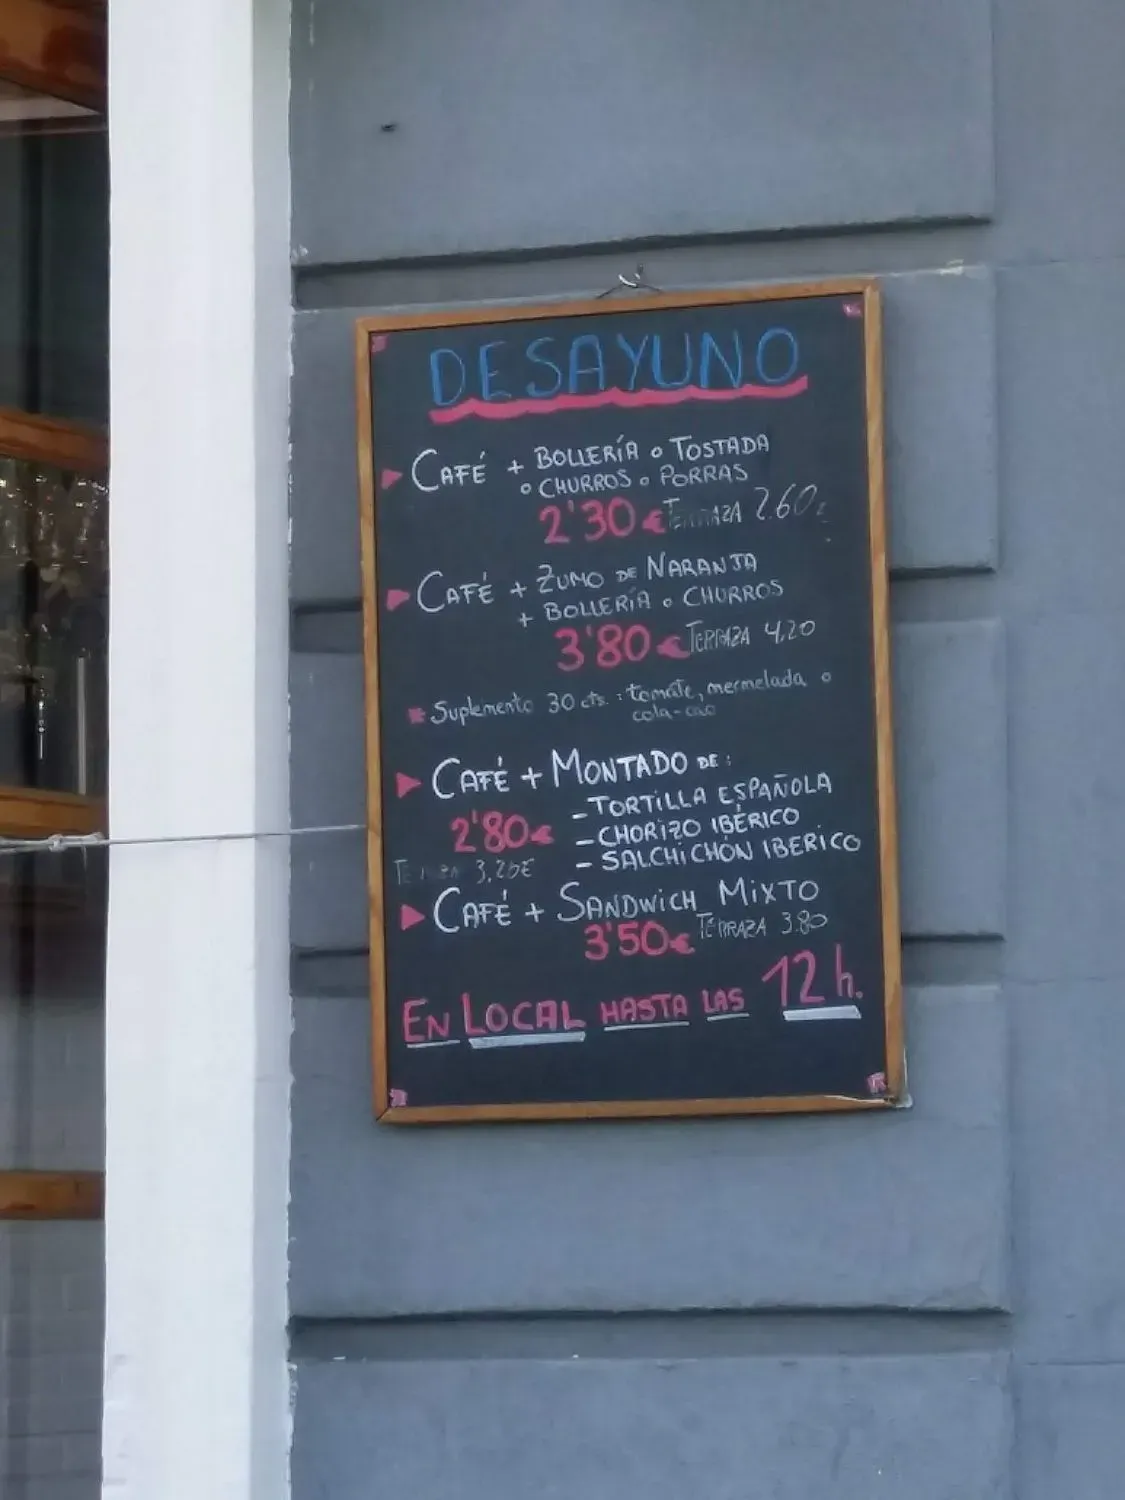 DESAYUNO
CAFÉ + BOLLERÍA o TOSTADA
o CHURROS o PORRAS
2'30 € TERRAZA 2.60
CAFÉ + ZUMO DE NARANJA
+ BOLLERÍA o CHURROS
3'80 € TERRAZA 4,20
Suplemento 30 cts. : tomate, mermelada o
cola-cao
CAFÉ + MONTADO DE :
- TORTILLA ESPAÑOLA
2'80€ - CHORIZO IBÉRICO
- SALCHICHÓN IBÉRICO
TERRAZA 3,20€
CAFÉ + SANDWICH MIXTO
3'50€ TERRAZA 3.80
EN LOCAL HASTA LAS 12 h.